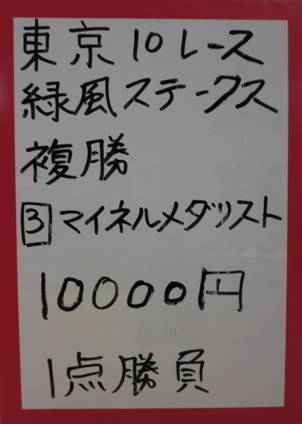 東京10レース
緑風ステークス
複勝
3マイネルメダリスト
10000円
1点勝負